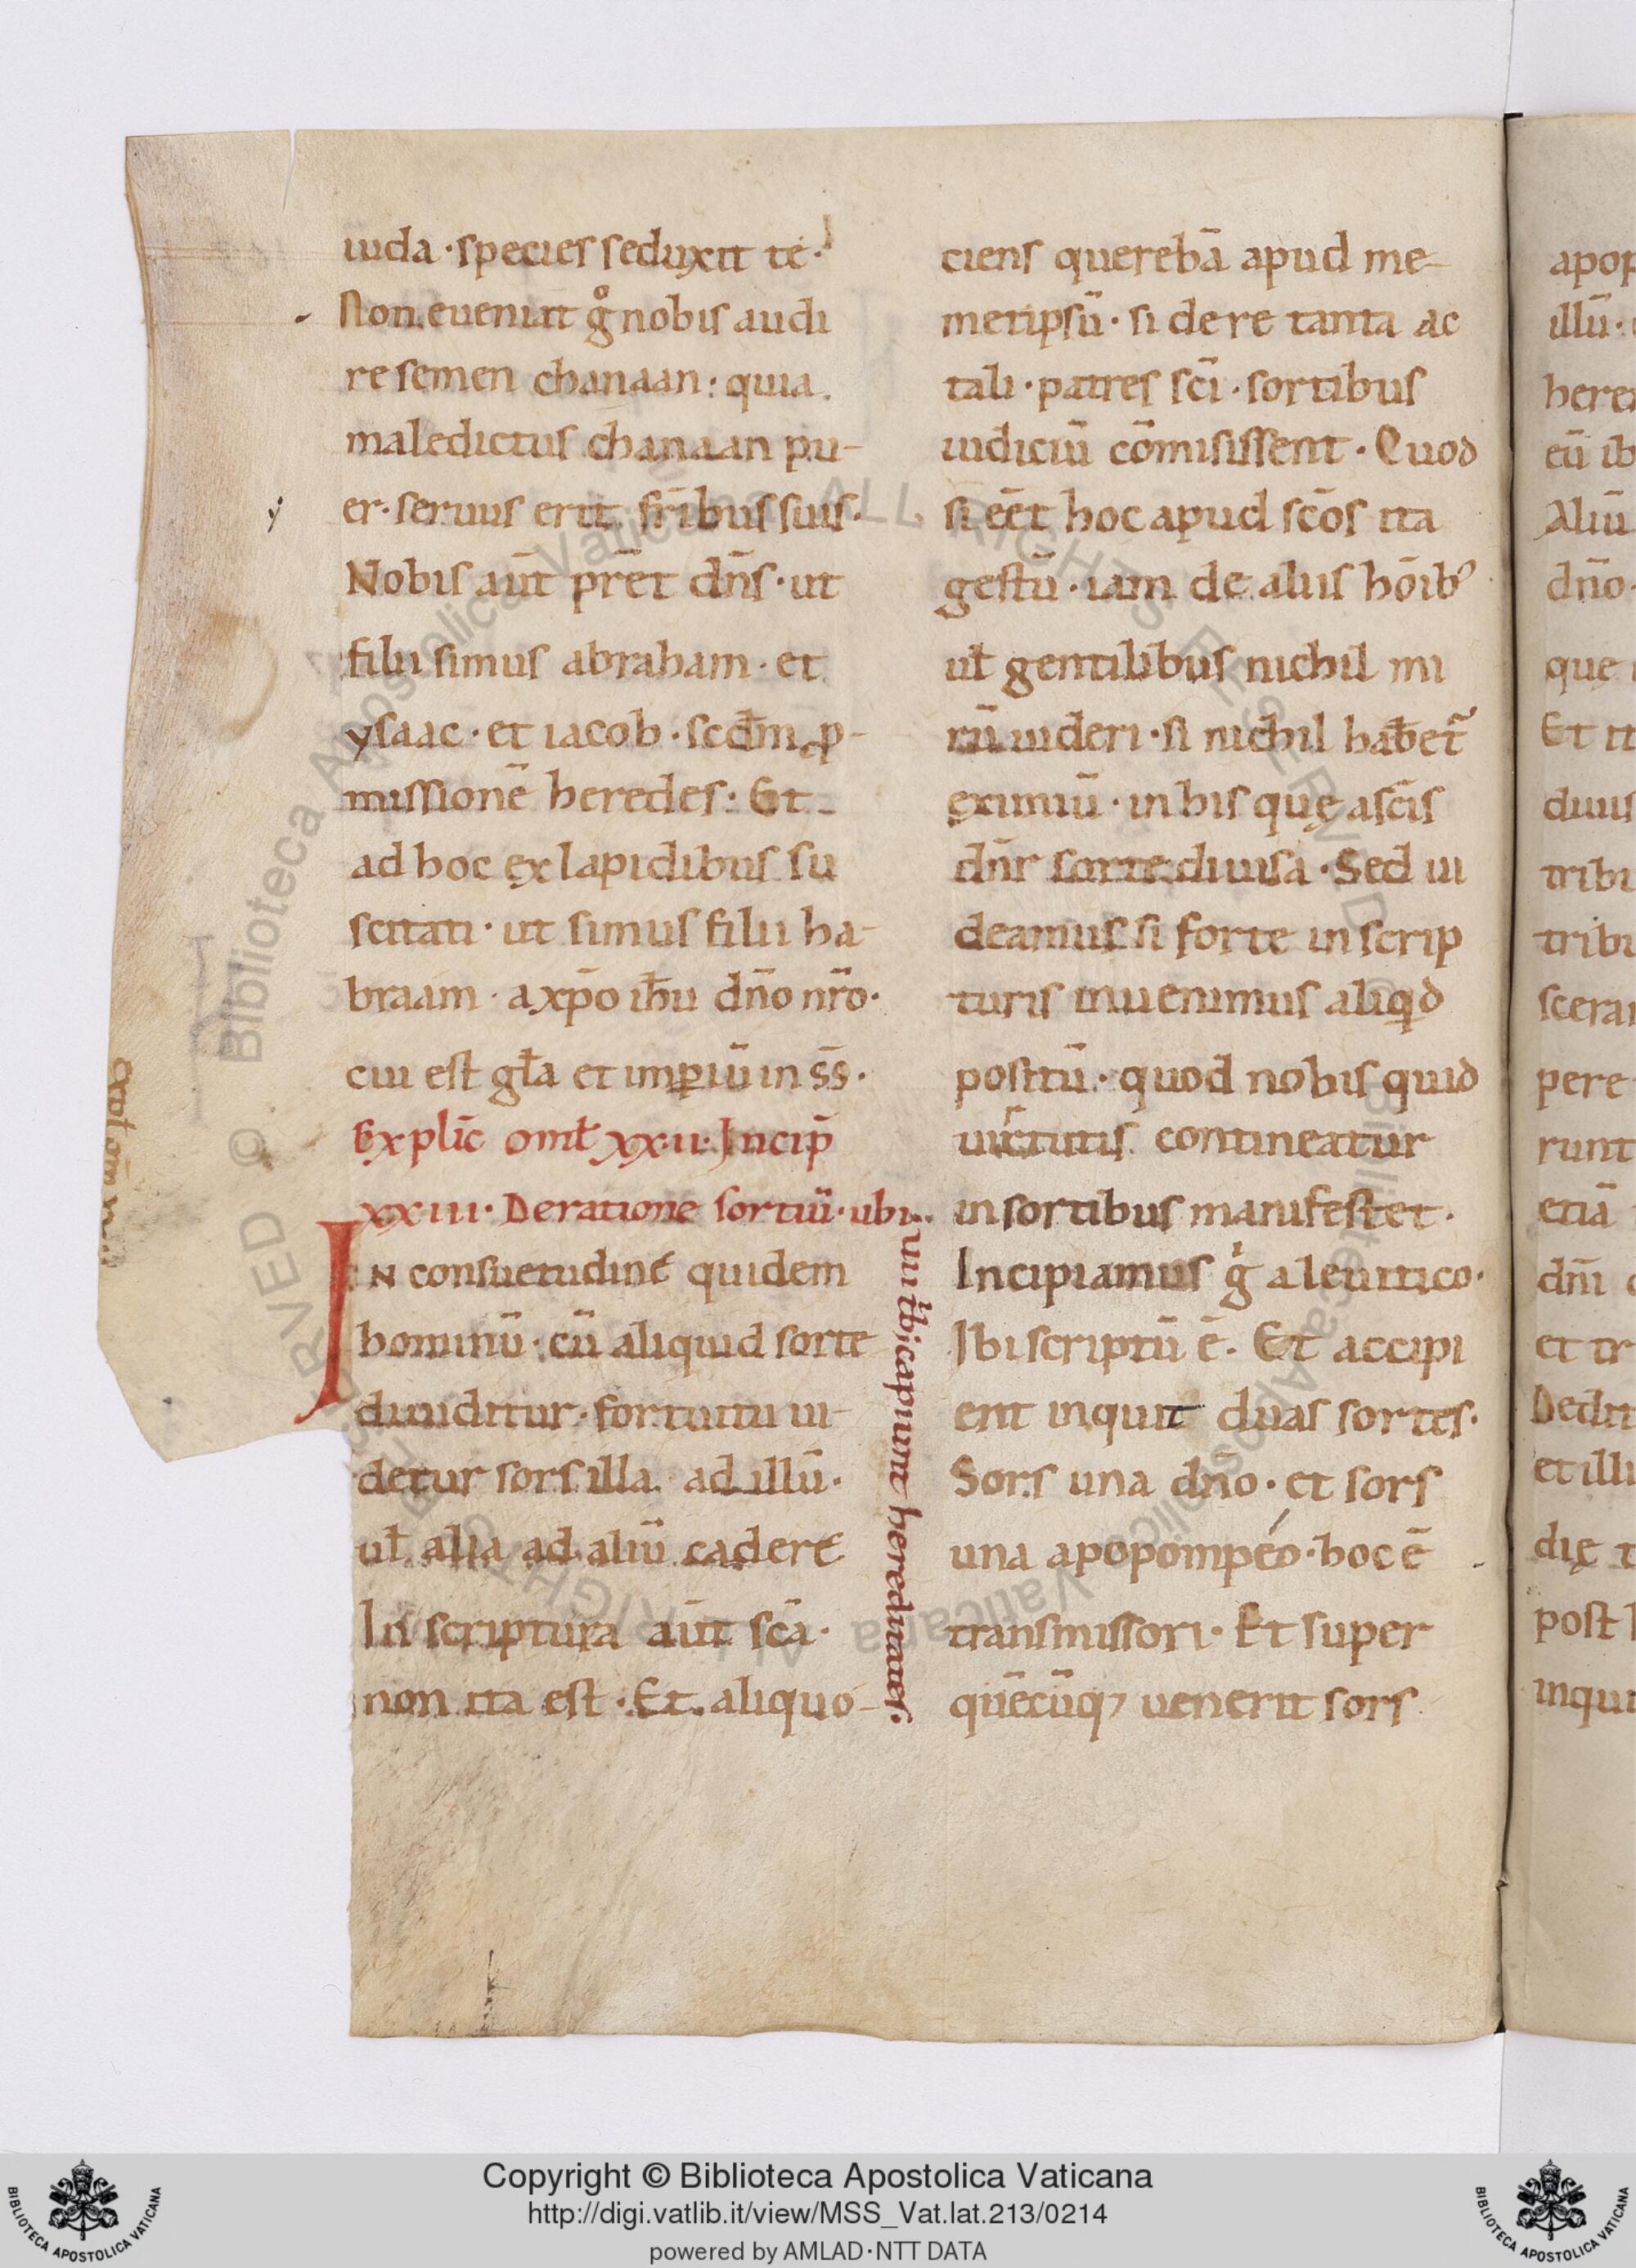 iuda · species seduxit te ·
Non eveniat g̊ nobis audi
re semen chanaan : quia
maledictus chanaan pu-
er · seruus erit fr̄ibus suis ·
Nobis aūt p̄ret dn̄s · ut
filii simus abraham · et
ysaac · et iacob · scdm̄ p-
missionē heredes : Et
ad hoc ex lapidibus su
scitati · ut simus filii ha-
braam · a xp̄o ih̄u dn̄o nr̄o ·
cui est gl̄a et imperiū in s̄s̄ ·
Explic̄ oml̄ xx·ii· Incip̄
xxiii · De ratione sortiū · ubi
uiii tb; capiunt hereditates ·
In consuetudine quidem
hominū · cū aliquid sorte
diuiditur · fortuitu ui-
detur sors illa ad illū ·
ul̄ alia ad aliū cadere
In scriptura aūt sc̄a ·
non ita est · Et aliquo-
ciens querebā apud me-
metipsū · si de re tanta ac
tali · patres sc̄i · sortibus
iudiciū cōmisissent · Quod
si eēt hoc apud sc̄os ita
gestū · iam de aliis hōib⁹
ul̄ gentilibus nichil mi
rū uideri · si nichil habet᷑
eximiū · in his quę a sc̄is
dn̄r sorte diuisa · Sed ui
deamus si forte in scrip
turis inuenimus aliqd
positū · quod nobis quid
uirtutis contineatur
in sortibus manifestet ·
Incipiamus gͥ a leuitico ·
Ibi scriptū ē · Et accipi
ent inquit duas sortes ·
Sors una dn̄o · et sors
una apopompéo · hoc ē
transmissori · Et super
quēcūq; uenerit sors
apop
illū ·
here
eū ib
Aliū
dn̄o ·
quę
Et it
duus
tribu
tribu
scera
pere
runt
etiā
dn̄i
et tr
Dedit
et illi
dię
post
inqui
Biblioteca Apostolica Vaticana ALL RIGHTS RESERVED ©
Copyright © Biblioteca Apostolica Vaticana
http://digi.vatlib.it/view/MSS_Vat.lat.213/0214
powered by AMLAD·NTT DATA
BIBLIOTECA APOSTOLICA VATICANA
BIBLIOTECA APOSTOLICA VATICANA